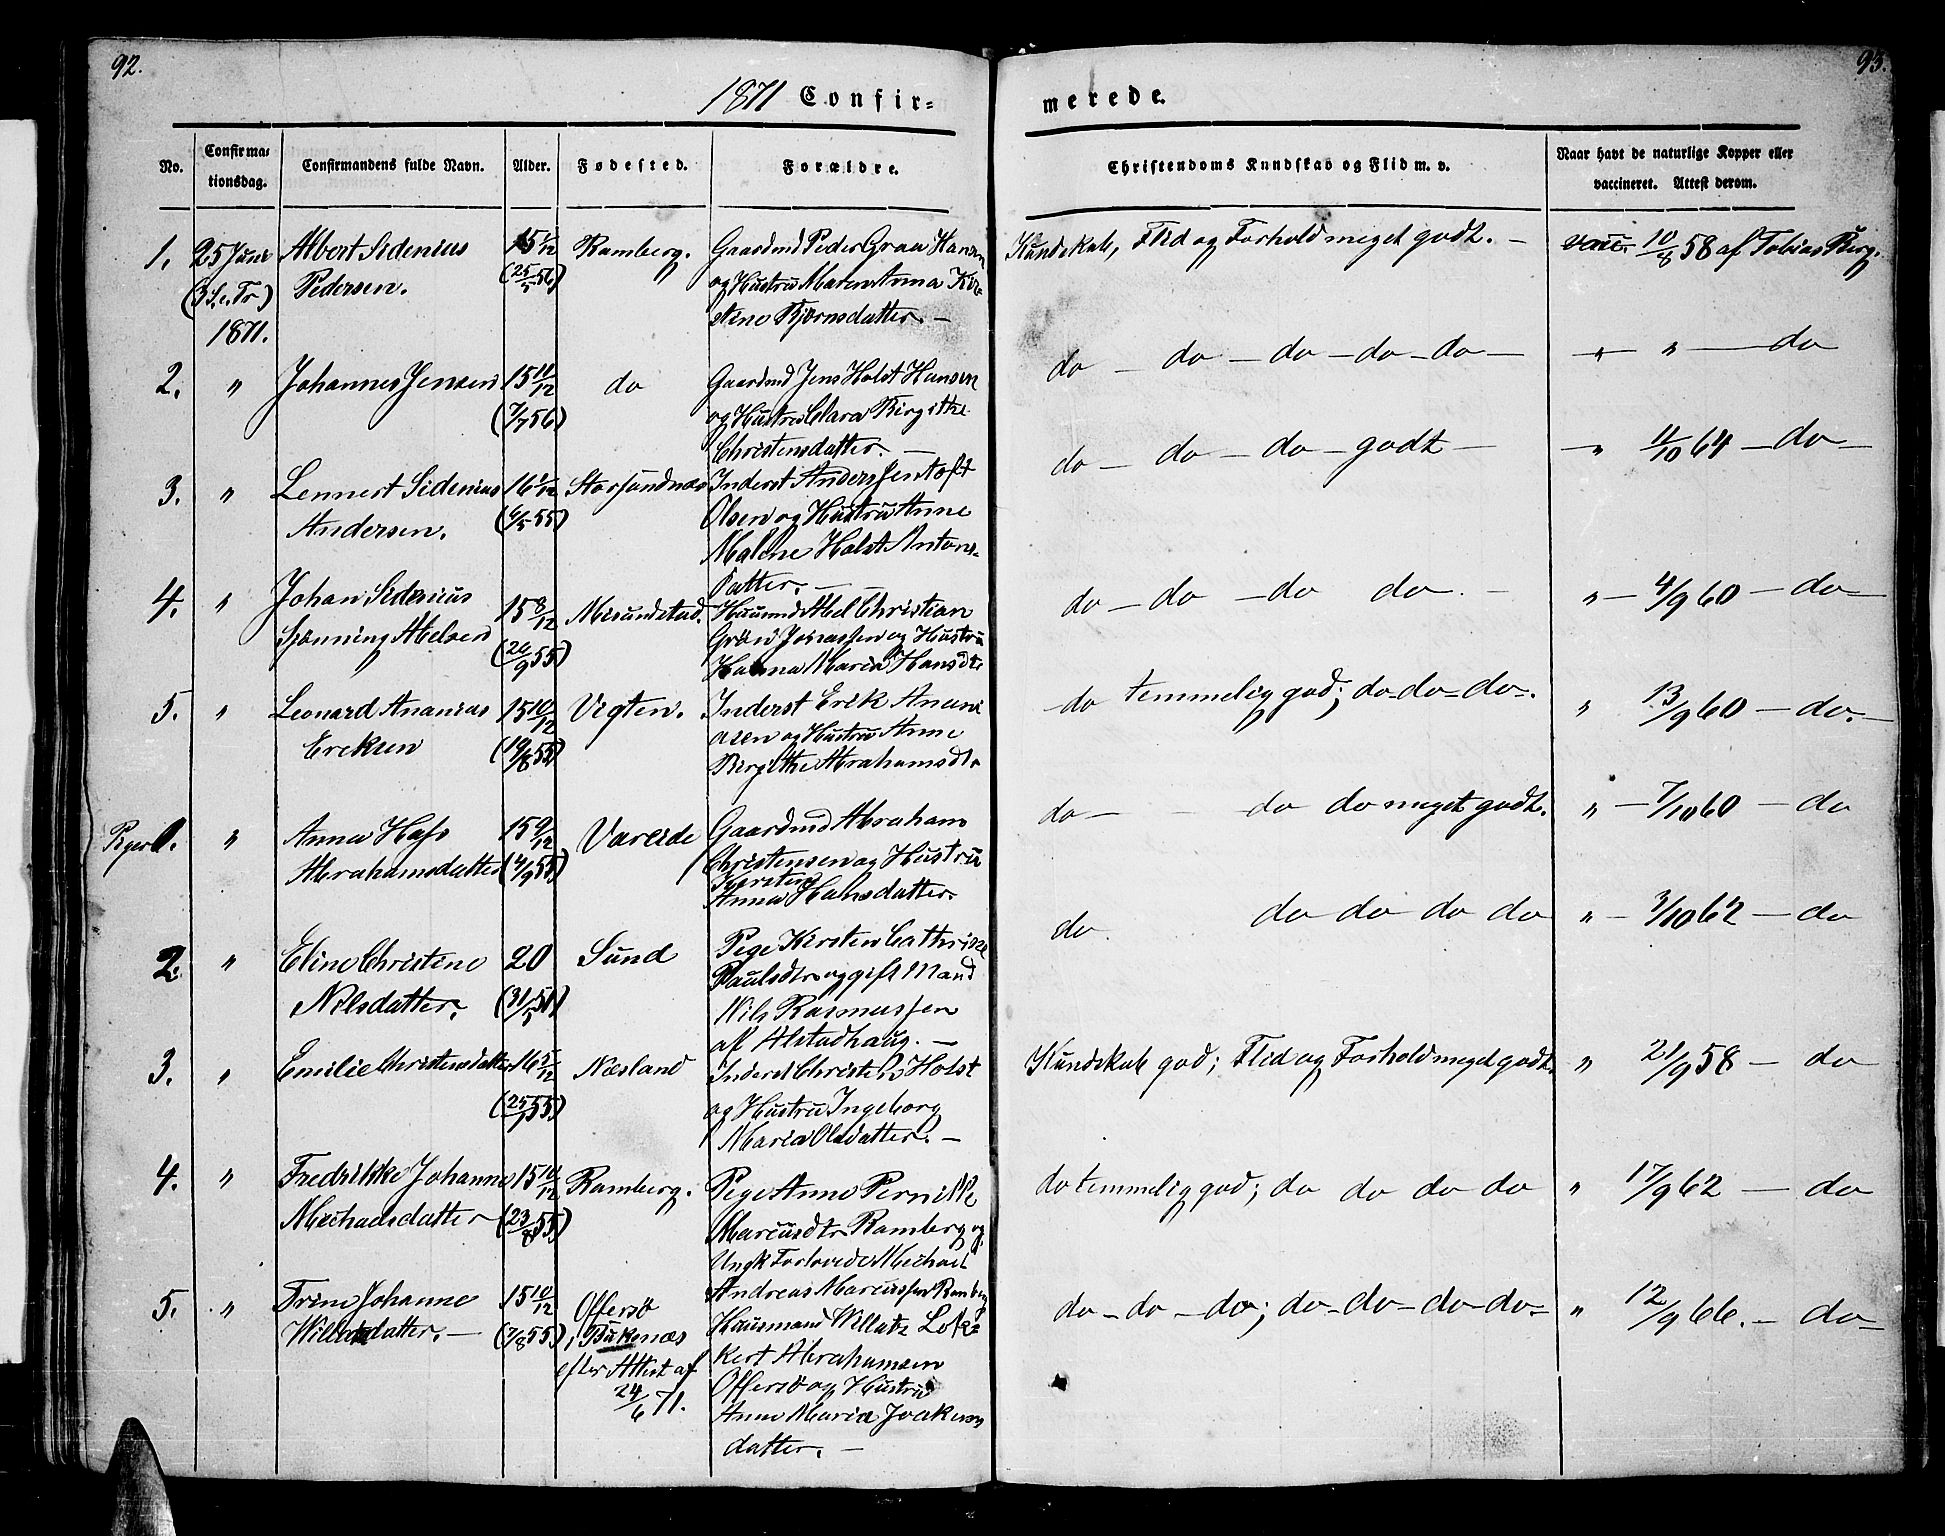 92.
93.
1871 Confir=
merede.
No.
Confirma-
tionsdag.
Confirmandens fulde Navn.
Alder.
Fødested.
Forældre.
Christendoms Kundskab og Flid m. v.
Naar havt de naturlige Kopper eller
vaccineret. Attest derom.
1. 25 Juni Albert Sidenius 15 1/12 Ramberg. Gaardmd Peder Grau Hansen
(3 S. e. Tr) Pedersen. (25/5 56) og Hustru Maren Anna Kir-
1871. stine Bjørnsdatter. —
Kundskab, Flid og Forhold meget godt. — vacc. 10/8 58 af Tobias Berg.
2. " Johannes Jensen 15 11/12 do Gaardmd Jens Holst Hansen
(7/7 56) og Hustru Clara Birgitte
Christensdatter. —
do — do — do — do — do — — " — do
3. " Lennert Sidenius 16 1/12 Storsundnæs Inderst Anders Jentoft
Andersen. (6/5 55) Olsen og Hustru Anne
Malene Holst Antons-
datter. —
do — do — do — godt — " 11/10 64 — do —
4. " Johan Sidenius 15 8/12 Misundstad. Huusmd Abel Christian
Schønning Abelsen (26/9 55) Grön Jonassen og Hustru
Hanna Maria Hansdtr
do — do — do do. — " — 4/9 60 — do —
5. " Leonard Ananias 15 10/12 Vigten. Inderst Erik Anani
Ereksen (19/8 55) asen og Hustru Anne
Bergithe Abrahamsdtr
do temmelig god; do — do — do —. " 13/9 60 — do. —
Piger 1. " Anna Hass 15 9/12 Vareide Gaardmd Abraham
Abrahamsdatter (4/9 55) Christensen og Hustru
Kirsten
Anna Hansdatter.
do — do do meget godt. " — 7/10 60 — do
2. " Eline Christine 20 Sund Pige Kirsten Cathrine
Nilsdatter. (31/5 51) Paulsdtr og gift Mand
Nils Rasmussen
af Alstadhaug. —
do. do do do do " — 3/10 62 — do
3. " Emilie Christensdatter 16 5/12 Næsland Inderst Christen Holst
(25/1 55) og Hustru Ingeborg
Maria Olsdatter. —
Kundskab god; Flid og Forhold meget godt. " 21/9 58 — do
4. " Fredrikke Johanna 15 10/12 Ramberg. Pige Anne Pernille
Michaelsdatter (23/8 55) Marcusdtr Ramberg og
Ungk Forlovede Michael
Andreas Marcussen Ramberg
do temmelig god; do do do do " 17/9 62 — do
5. " Trine Johanne 15 10/12 Offersø Huusmand Willatz Lok-
datter. — (7/8 55) i Buksnæs kert Abrahamsen
efter Attest af Offersø og Hustru
24/6 71. Anne Maria Joakims
datter. —
do — do — do; do — do — do — do — " 12/9 66. — do —